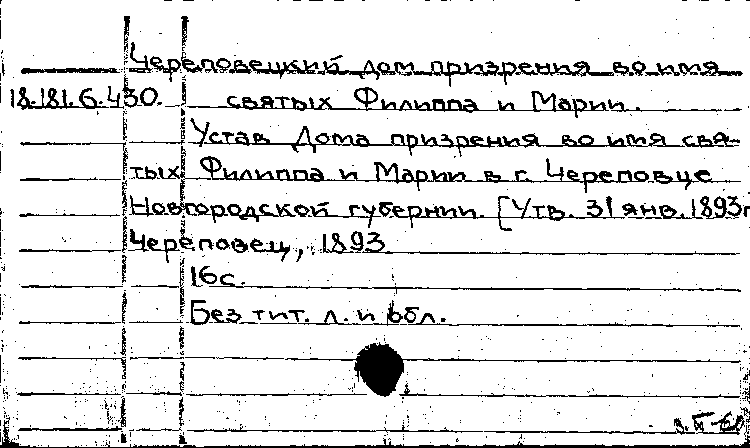 Череповецкий дом призрения во имя
18.181.6.430. святых Филиппа и Марии.
Устав Дома призрения во имя свя-
тых Филиппа и Марии в г. Череповце
Новгородской губернии. [Утв. 31 янв. 1893г
Череповец, 1893
16с.
Без тит. л. и обл.